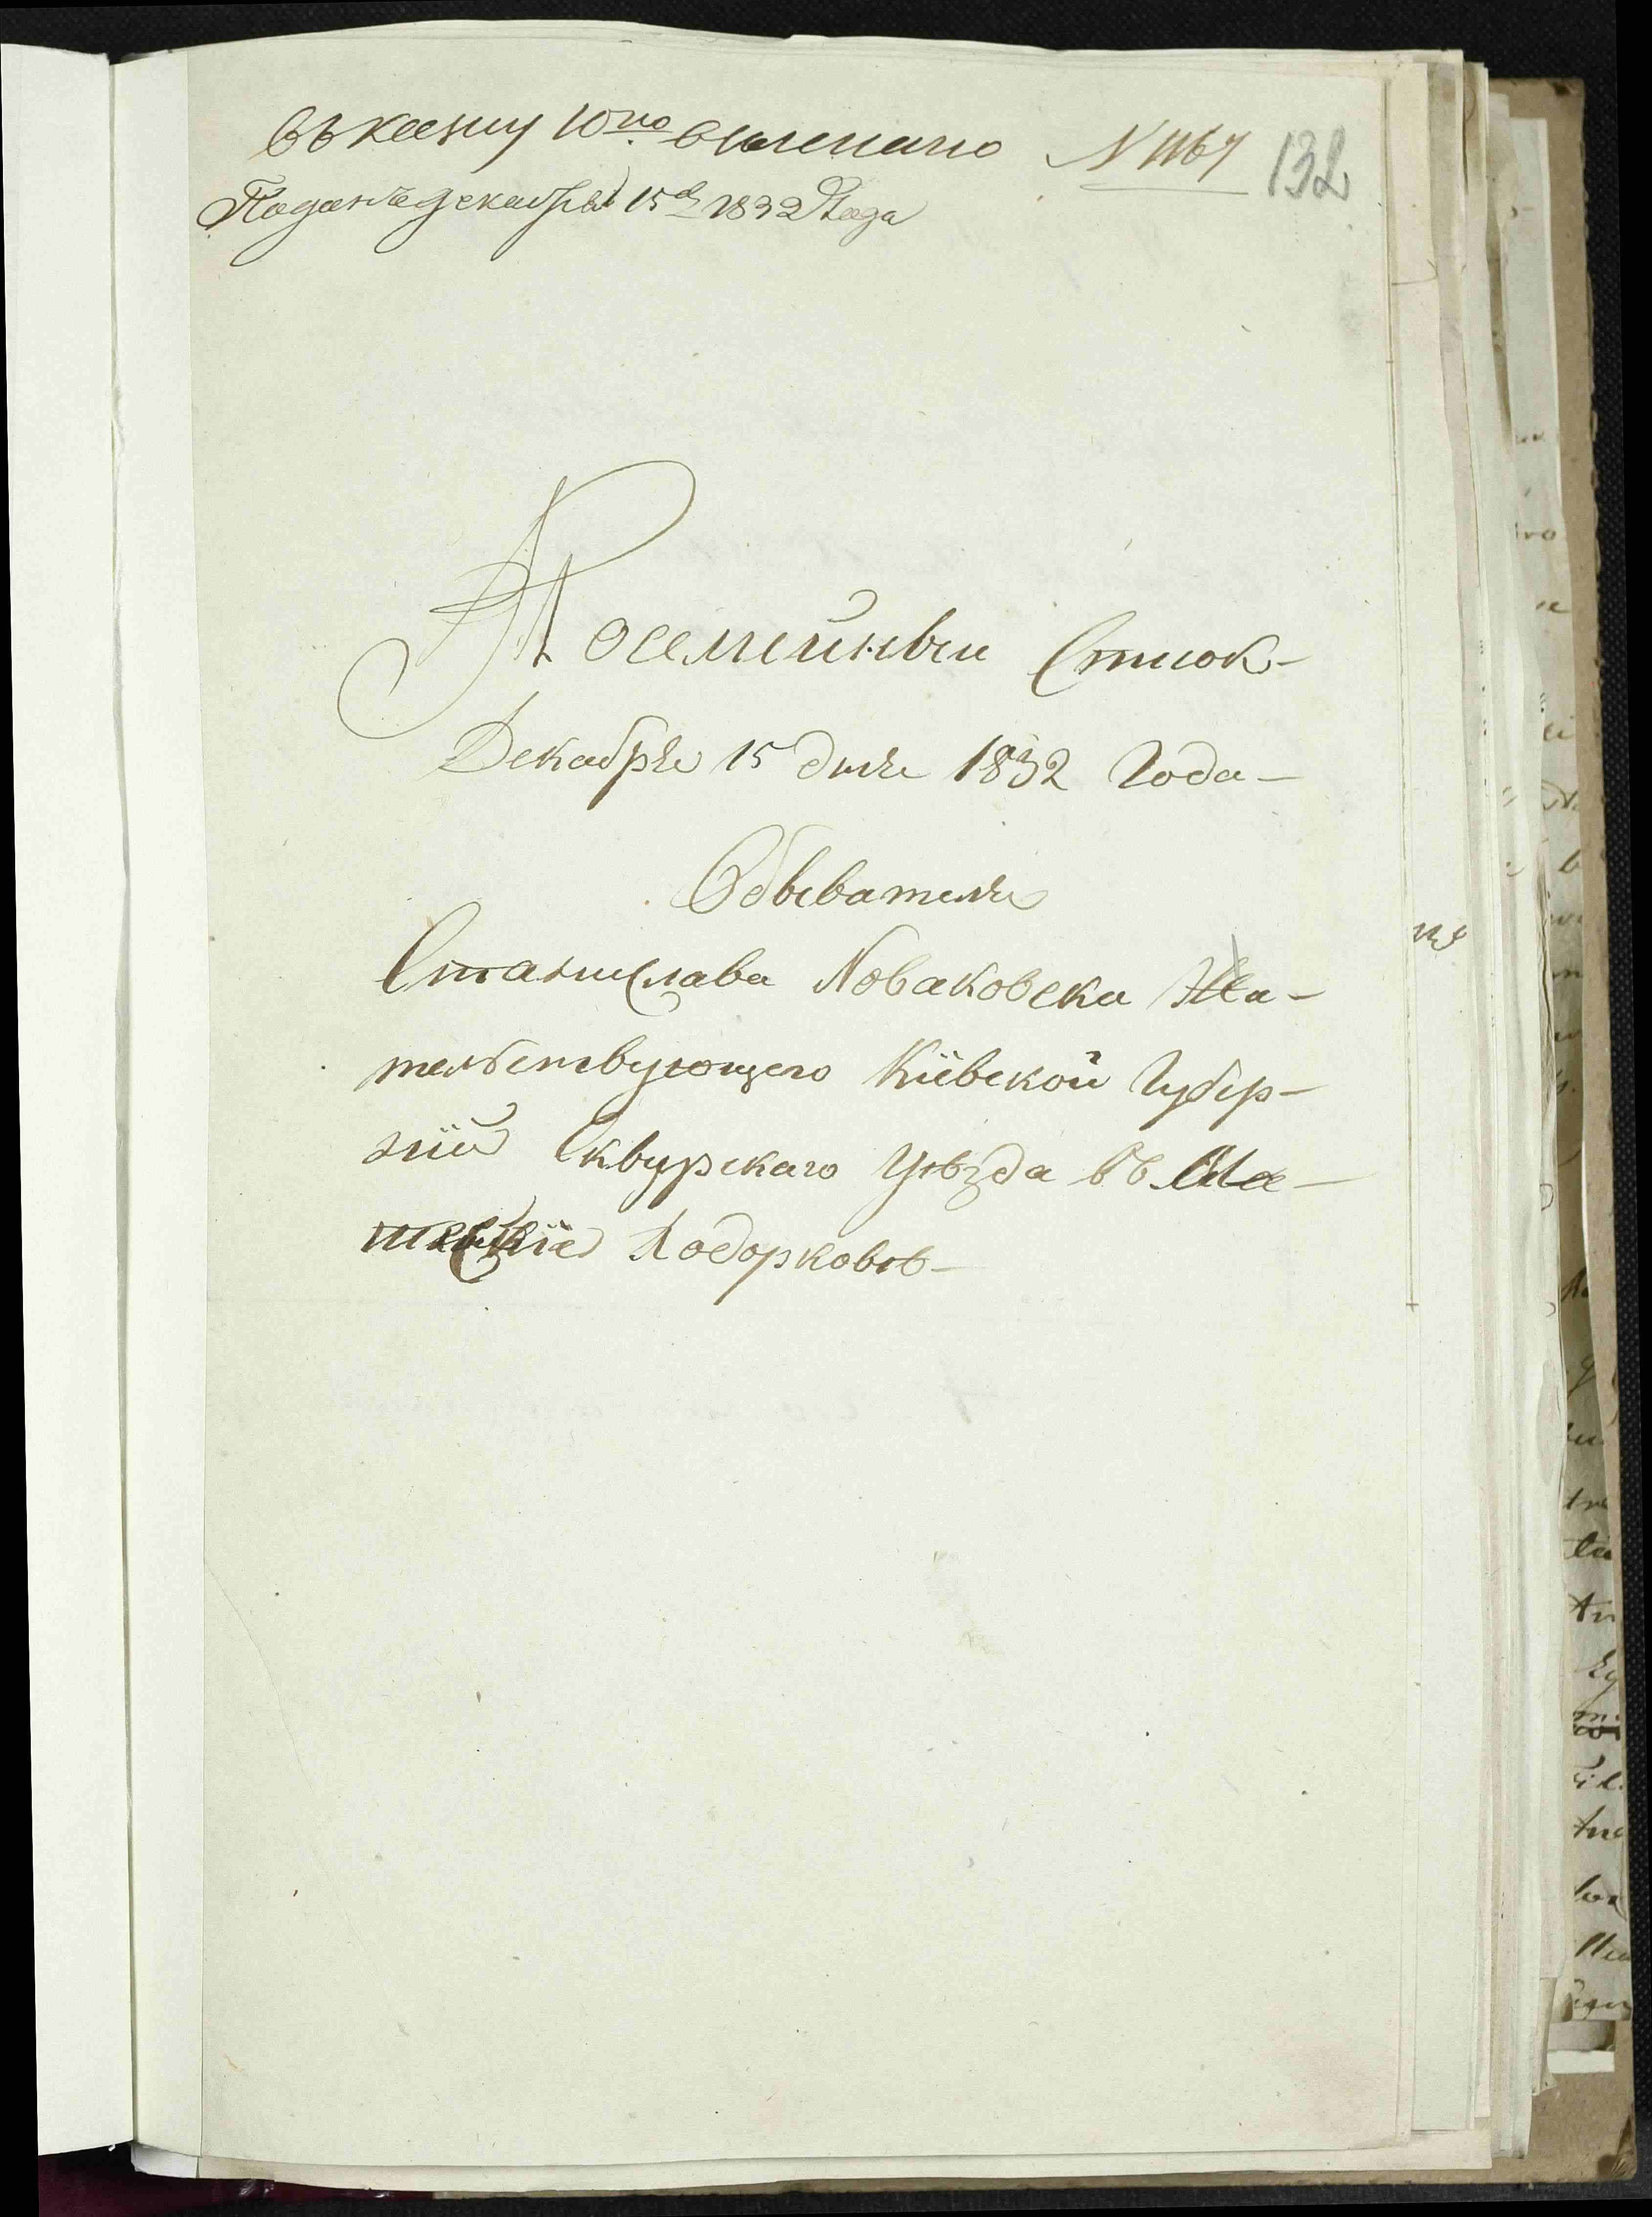 въ книгу 10го внесено N 1167 132
Поданъ декабря 15д 1832 Года
Посемейный Список-
Декабря 15 дня 1832 Года-
Обывателя
Станислава Новаковска Жи-
тельствующего Кіевской Губер-
ніи Сквирскаго Уѣзда въ Ме-
Ходорковѣ-